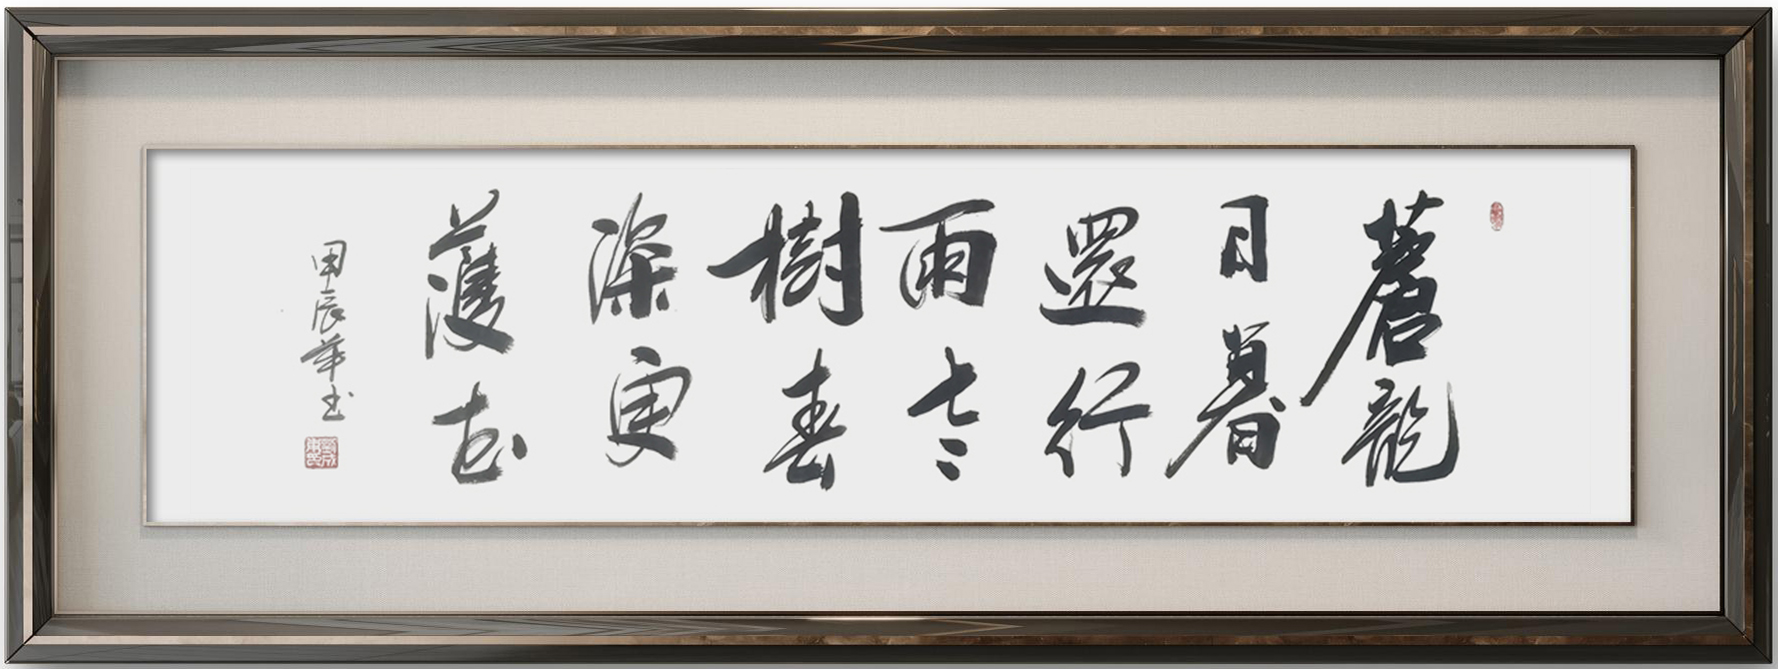 蒼龍
日暮
還行
雨老
樹春
深更
護花
甲辰華書